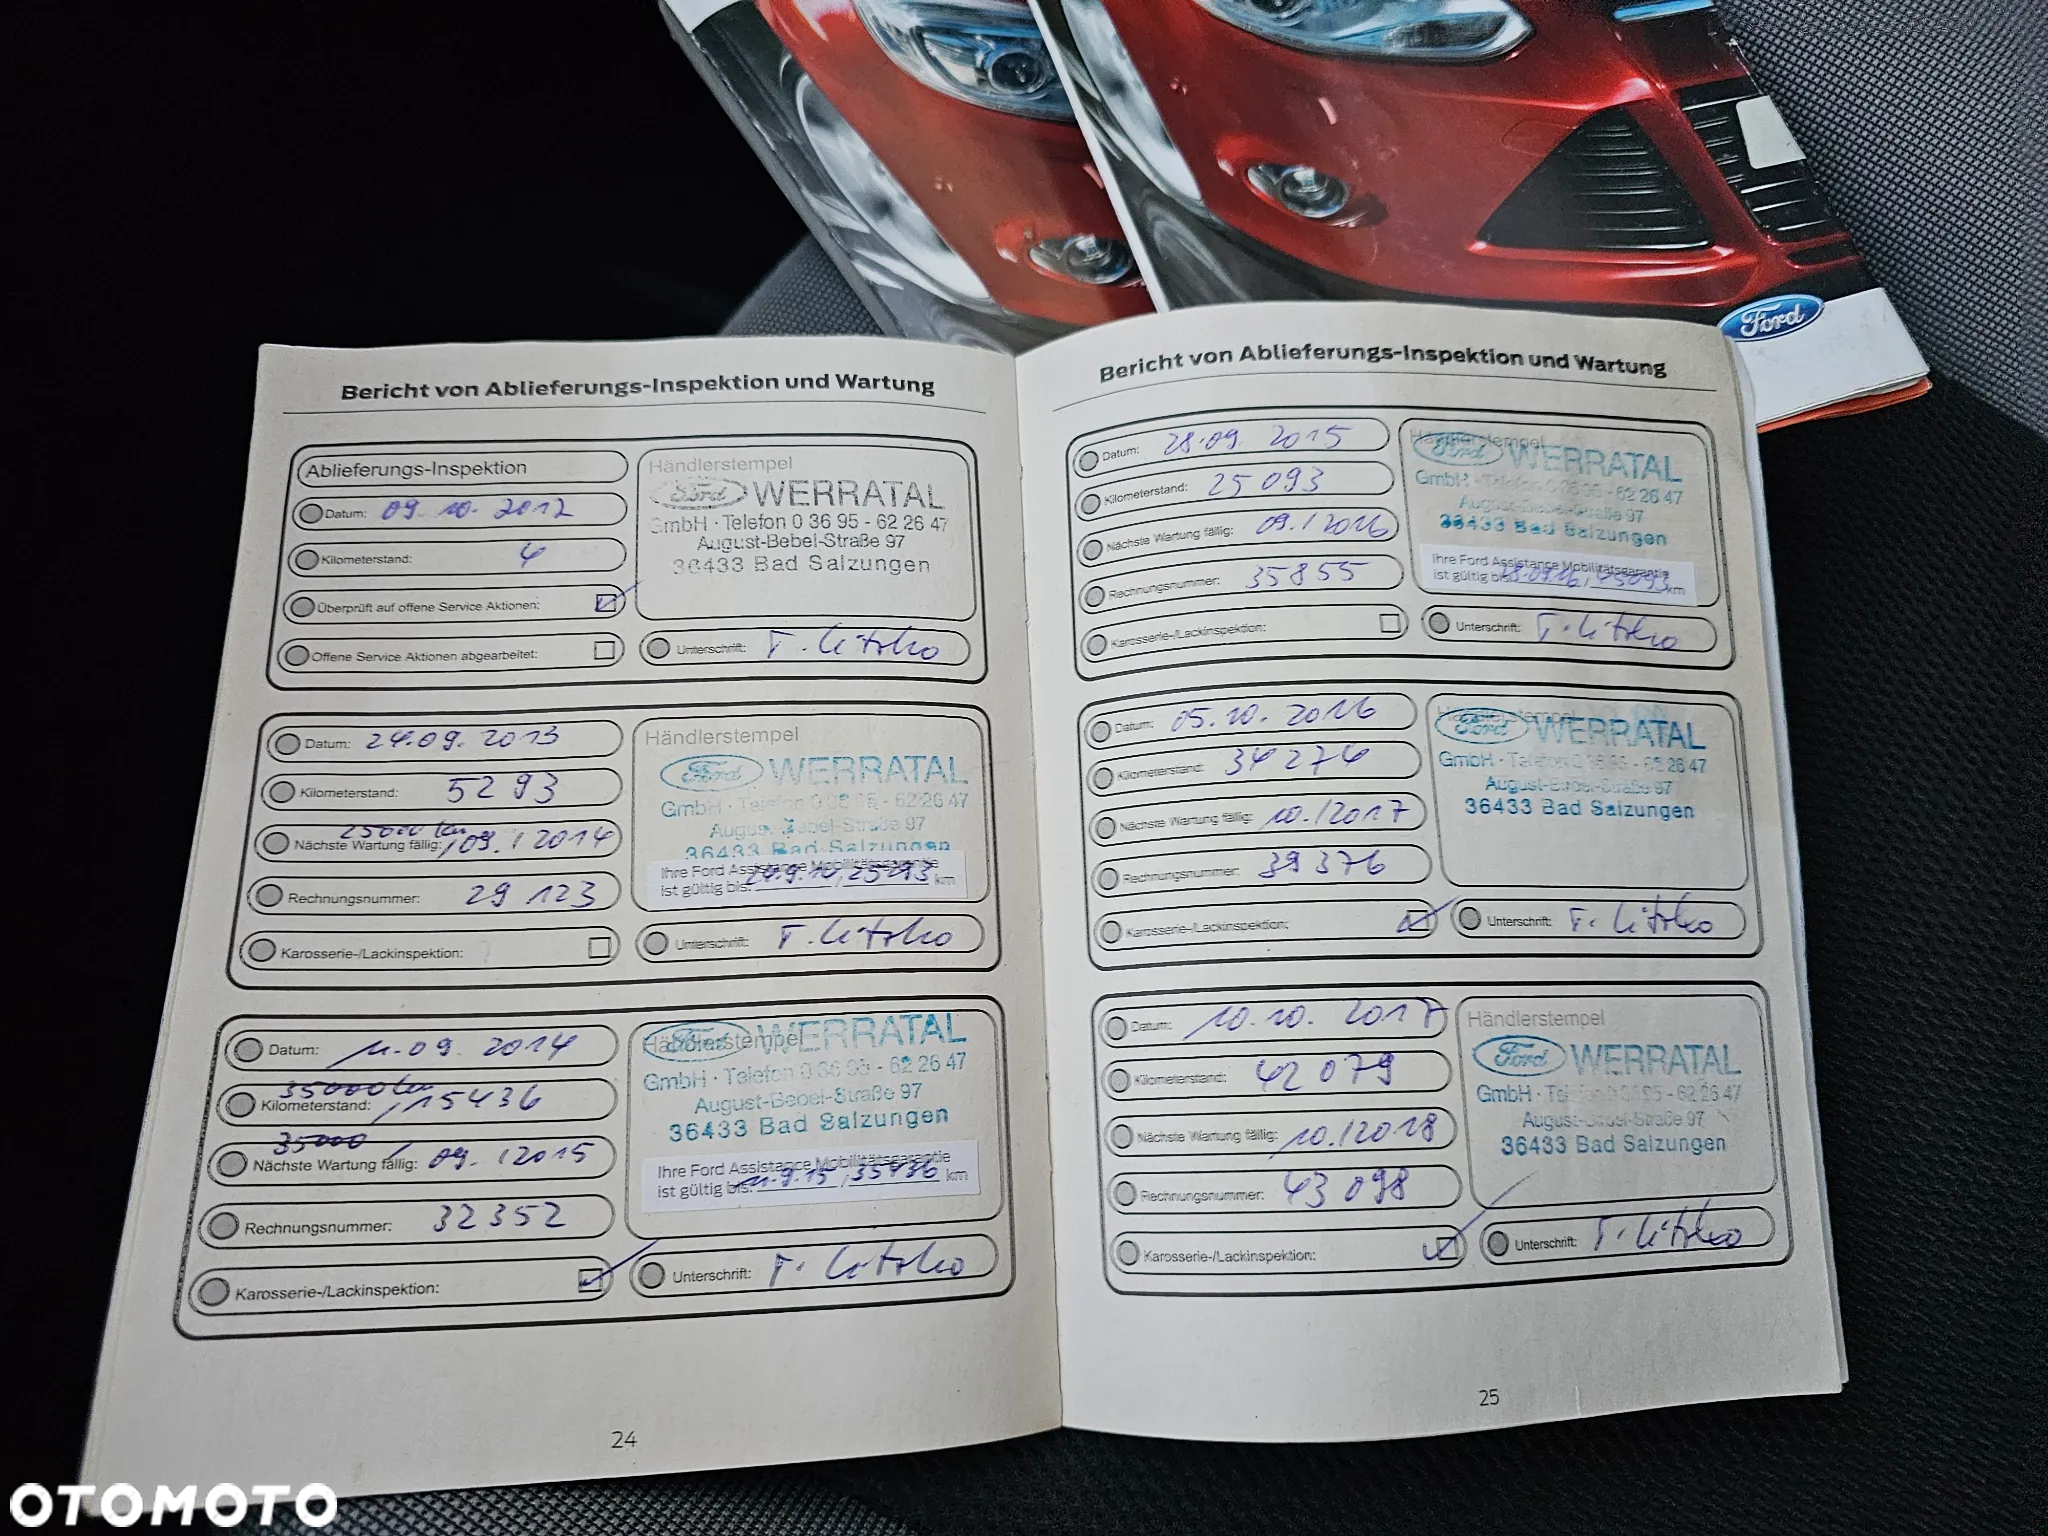 Ford
Bericht von Ablieferungs-Inspektion und Wartung
Ablieferungs-Inspektion
Datum: 09.10.2012
Kilometerstand: 4
Überprüft auf offene Service Aktionen:
Offene Service Aktionen abgearbeitet:
Händlerstempel
Ford WERRATAL
GmbH · Telefon 0 36 95 - 62 26 47
August-Bebel-Straße 97
36433 Bad Salzungen
Unterschrift:
Datum: 24.09.2013
Kilometerstand: 5293
25000 km
Nächste Wartung fällig: , 09./2014
Rechnungsnummer: 29123
Karosserie-/Lackinspektion:
Händlerstempel
Ford WERRATAL
GmbH · Telefon 0 36 95 - 62 26 47
August-Bebel-Straße 97
36433 Bad Salzungen
Ihre Ford Assistance Mobilitätsgarantie
ist gültig bis: km
Unterschrift:
Datum: 11.09.2014
35000 km
Kilometerstand: , 15436
35000
Nächste Wartung fällig: 09./2015
Rechnungsnummer: 32352
Karosserie-/Lackinspektion:
Händlerstempel
Ford WERRATAL
GmbH · Telefon 0 36 95 - 62 26 47
August-Bebel-Straße 97
36433 Bad Salzungen
Ihre Ford Assistance Mobilitätsgarantie
ist gültig bis: 11.9.15, 35436 km
Unterschrift:
24
Bericht von Ablieferungs-Inspektion und Wartung
Datum: 28.09.2015
Kilometerstand: 25093
Nächste Wartung fällig: 09./2016
Rechnungsnummer: 35855
Karosserie-/Lackinspektion:
Händlerstempel
Ford WERRATAL
GmbH · Telefon 0 36 95 - 62 26 47
August-Bebel-Straße 97
36433 Bad Salzungen
Ihre Ford Assistance Mobilitätsgarantie
ist gültig bis: 28.09.16, 45093 km
Unterschrift:
Datum: 05.10.2016
Kilometerstand: 34274
Nächste Wartung fällig: 10./2017
Rechnungsnummer: 39376
Karosserie-/Lackinspektion:
Händlerstempel
Ford WERRATAL
GmbH · Telefon 0 36 95 - 62 26 47
August-Bebel-Straße 97
36433 Bad Salzungen
Unterschrift:
Datum: 10.10.2017
Kilometerstand: 42079
Nächste Wartung fällig: 10./2018
Rechnungsnummer: 43098
Karosserie-/Lackinspektion:
Händlerstempel
Ford WERRATAL
GmbH · Telefon 0 36 95 - 62 26 47
August-Bebel-Straße 97
36433 Bad Salzungen
Unterschrift:
25
OTOMOTO